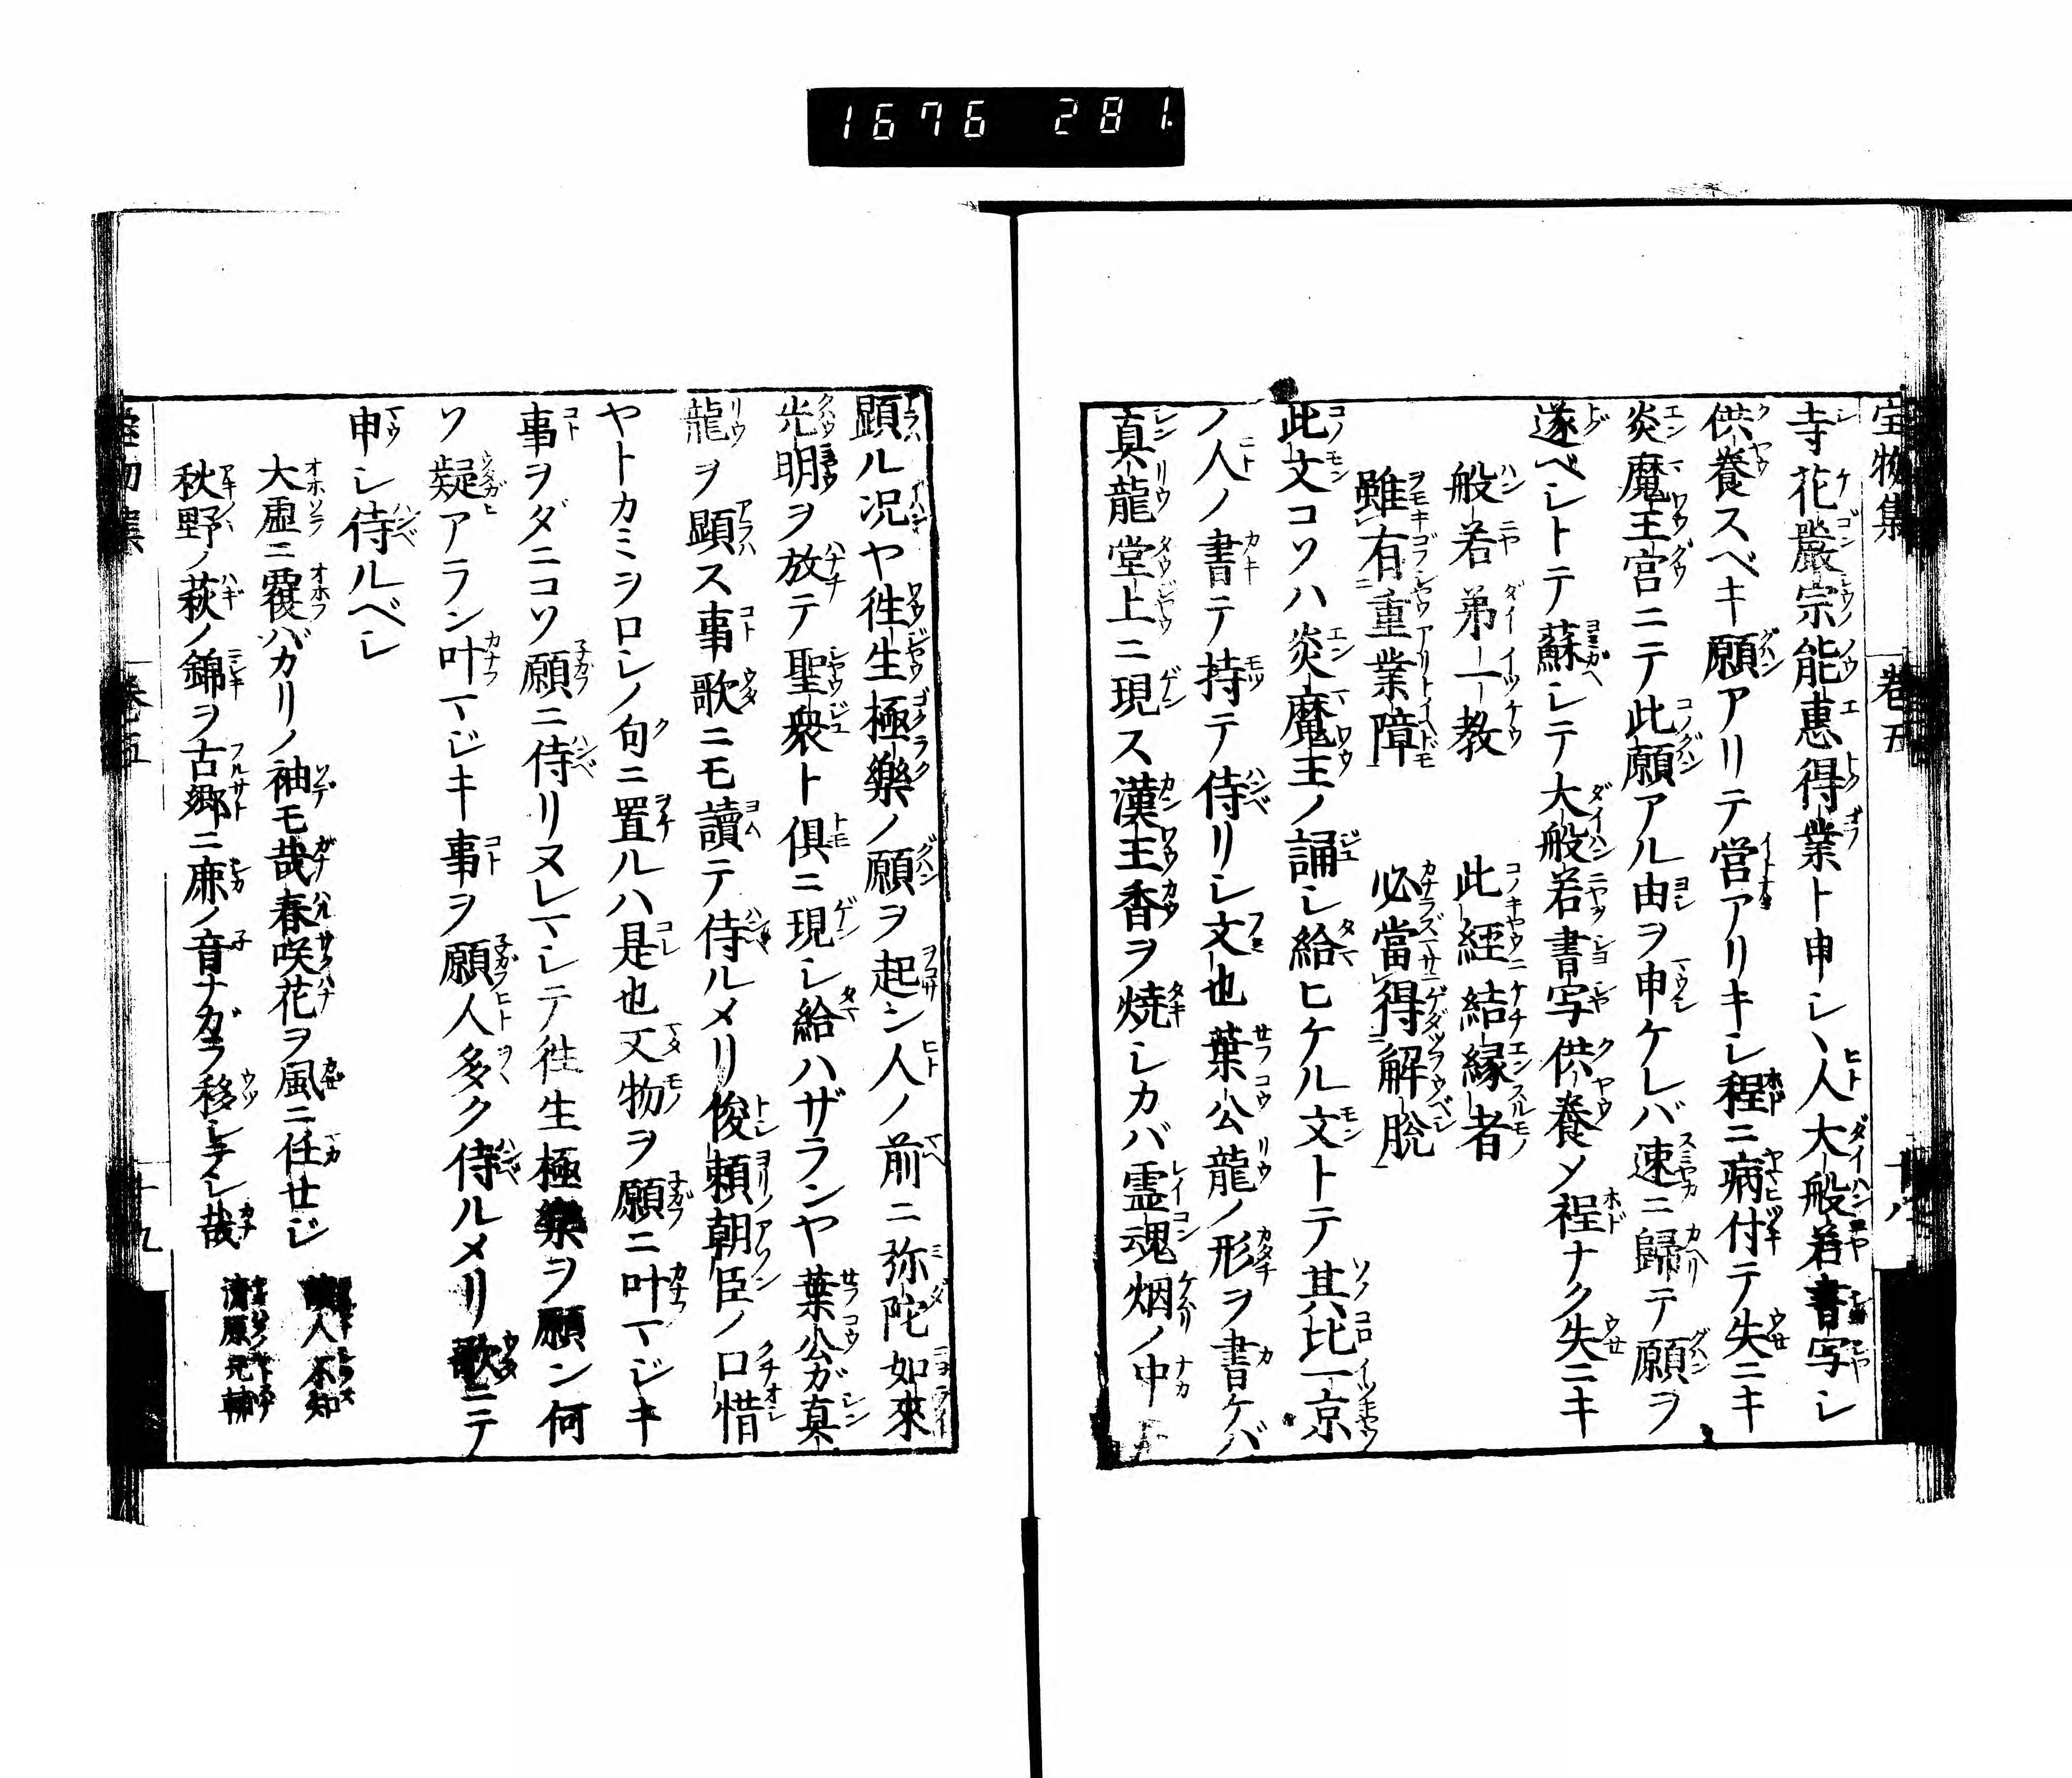 1676 281
宝物集 巻五 十八
寺花嚴宗能惠得業ト申シヽ人大般若書写シ
供養スベキ願アリテ営アリキシ程ニ病付テ失ニキ
炎魔王宮ニテ此願アル由ヲ申ケレバ速ニ歸テ願ヲ
遂ベシトテ蘇シテ大般若書写供養メ程ナク失ニキ
般若弟一教 此経結縁者
雖有重業障 必當得解脫
此文コソハ炎魔王ノ誦シ給ヒケル文トテ其比一京
ノ人ノ書テ持テ侍リシ文也葉公龍ノ形ヲ書ケバ
真龍堂上ニ現ス漢王香ヲ焼シカバ霊魂烟ノ中
顕ル况ヤ徃生極樂ノ願ヲ起シ人ノ前ニ弥陀如來
光明ヲ放テ聖衆ト倶ニ現シ給ハザランヤ葉公ガ真
龍ヲ顕ス事歌ニモ讀テ侍ルメリ俊頼朝臣ノ口惜
ヤトカミヲロシノ句ニ置ルハ是也又物ヲ願ニ叶マジキ
事ヲダニコソ願ニ侍リヌレマシテ徃生極樂ヲ願ン何
ソ疑アラン叶マジキ事ヲ願人多ク侍ルメリ歌ニテ
申シ侍ルベシ
大虚ニ覆バカリノ袖モ哉春咲花ヲ風ニ任せジ 人不知
秋野ノ萩ノ錦ヲ古郷ニ鹿ノ音ナガラ移シテシ哉 清原元輔